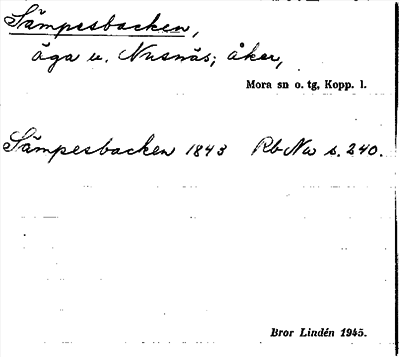 Sämpesbacken,
äga u. Nusnäs; åker,
Mora sn o. tg, Kopp. l.
Sämpesbacken 1843 Rb Nu s. 240.
Bror Lindén 1945.